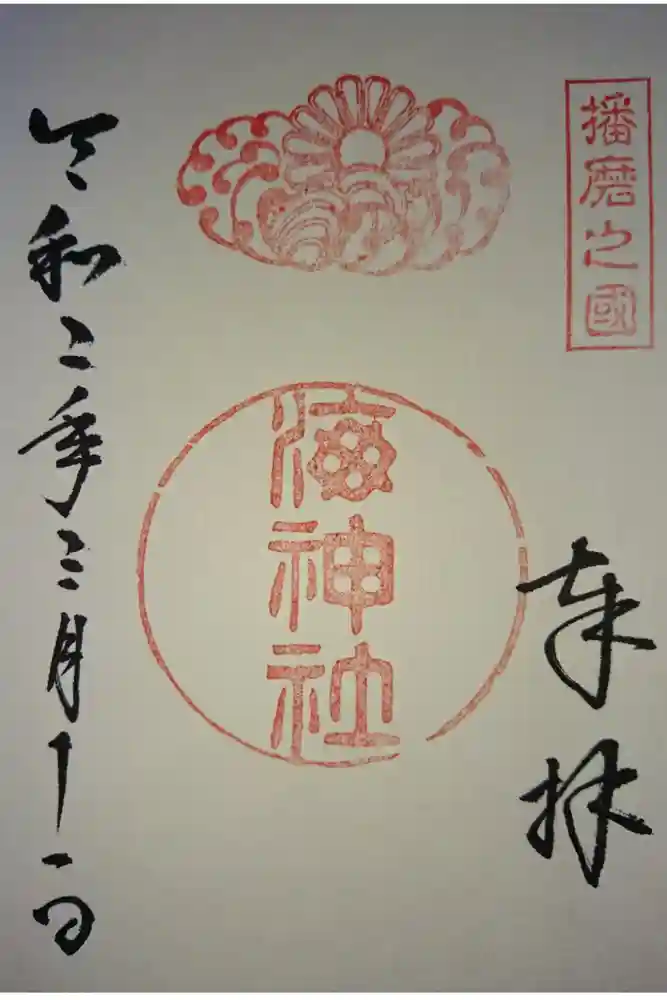 播磨之國
奉拝
海神社
令和二年三月十一日